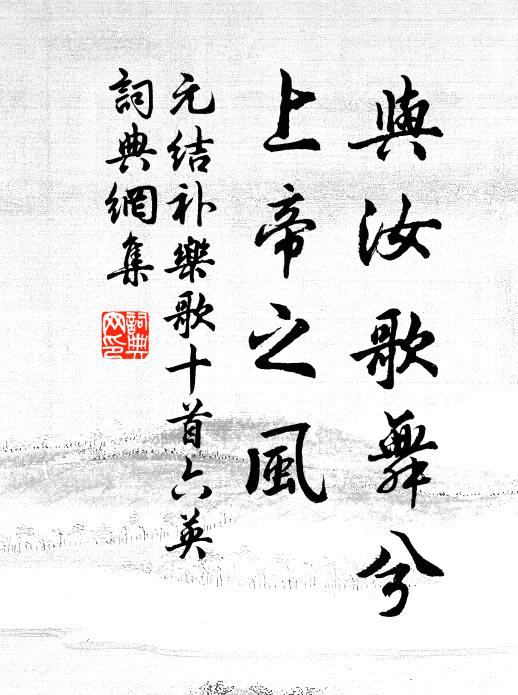 與汝歌舞兮
上帝之風
元结补樂歌十首六英
詞典網集
詞典
网印